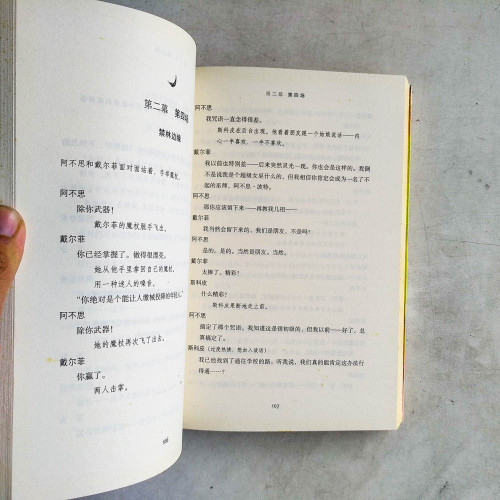 第二幕 第四场
禁林边缘
阿不思和戴尔菲面对面站着，手举魔杖。
阿不思
除你武器！
戴尔菲的魔杖脱手飞出。
戴尔菲
你已经掌握了。做得很漂亮。
她从他手里拿回自己的魔杖，
用一种迷人的嗓音。
“你绝对是个能让人缴械投降的年轻人。”
阿不思
除你武器！
她的魔杖再次飞了出去。
戴尔菲
你赢了。
两人击掌。
106
第二幕 第四场
阿不思
我咒语一直念得很差。
斯科皮在后台出现。他看着朋友跟一个姑娘说话——内
心一半喜欢，一半不喜欢。
戴尔菲
我以前也特别差——后来突然灵光一现。你也会是这样的。我倒
不是说我是个超级女巫什么的，但我相信你肯定会成为一名了不
起的巫师，阿不思·波特。
阿不思
那你应该留下来——再教我几招——
戴尔菲
我当然会留下来的，我们是朋友，不是吗？
阿不思
是的。是的。当然是朋友。当然。
戴尔菲
太棒了。精彩！
斯科皮
什么精彩？
斯科皮果断地走上前。
阿不思
搞定了那个咒语。我知道这是很初级的，但我以前——好了，总
算搞定了。
斯科皮（过度热情，想加入谈话）
我已经找到了通往学校的路。听我说，我们真的能肯定这办法行
得通——？
107